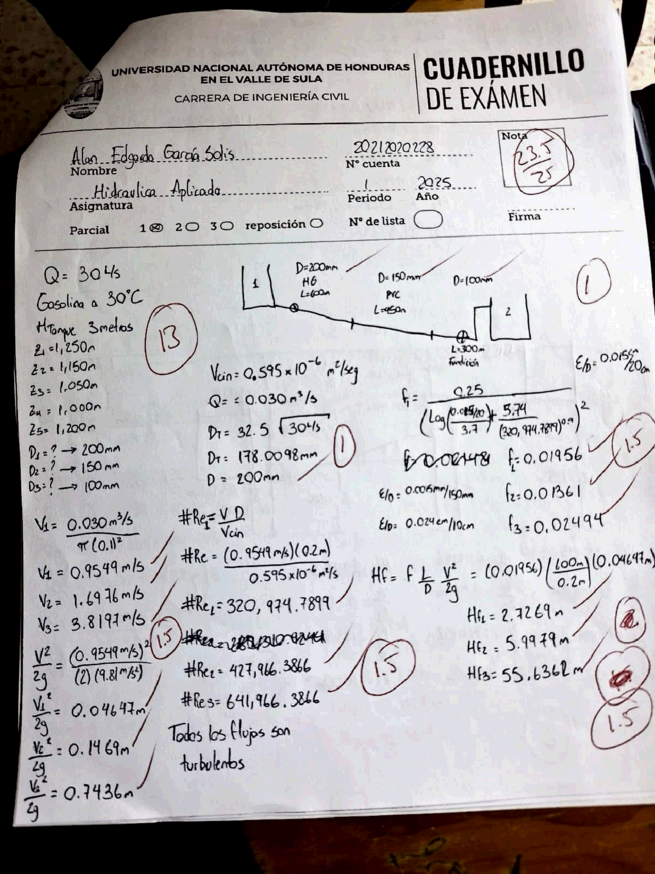 UNIVERSIDAD NACIONAL AUTÓNOMA DE HONDURAS
EN EL VALLE DE SULA
CARRERA DE INGENIERÍA CIVIL
CUADERNILLO
DE EXÁMEN
Alan Edgardo García Solis
Nombre
20212020228
Nº cuenta
Nota
23.5/25
Hidraulica Aplicada
Asignatura
1 2025
Periodo Año
Parcial 1 2 3 reposición
Nº de lista
Firma
Q = 30 L/s
Gasolina a 30°C
H Tanque 3 metros
Z1 = 1,250m
Z2 = 1,150m
Z3 = 1,050m
Z4 = 1,000m
Z5 = 1,200m
D1 = ? → 200mm
D2 = ? → 150mm
D3 = ? → 100mm
13
1
D=200mm
HG
L=600m
D=150mm
PVC
L=450m
D=100mm
2
L=300m
fundición
1
Vcin = 0.595 x 10^-6 m²/seg
Q = 0.030 m³/s
DT = 32.5 √30 L/s
DT = 178.0098mm
D = 200mm
1
f1 = 0.25 / (Log(0.015/20 / 3.7 + 5.74 / (320,974.7899)^0.9))²
f1 = 0.01956
f2 = 0.01361
f3 = 0.02494
1.5
E/D = 0.0015mm/150mm
E/D = 0.024cm/10cm
V1 = 0.030 m³/s / π(0.1)²
V1 = 0.9549 m/s
V2 = 1.6976 m/s
V3 = 3.8197 m/s
V²/2g = (0.9549 m/s)² / (2)(9.81 m/s²)
1.5
V1²/2g = 0.04647m
V2²/2g = 0.1469m
V3²/2g = 0.7436m
#Re1 = V D / Vcin
#Re = (0.9549 m/s)(0.2m) / 0.595x10^-6 m²/s
#Re1 = 320,974.7899
#Re2 = 427,966.3866
#Re3 = 641,966.3866
1.5
Todos los flujos son
turbulentos
Hf = f L/D V²/2g = (0.01956) (600m/0.2m) (0.04647m)
Hf1 = 2.7269m
Hf2 = 5.9979m
Hf3 = 55.6362m
1.5